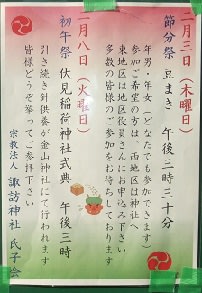 二月三日(木曜日)
節分祭 豆まき 午後二時三十分
年男・年女(どなたでも参加できます)
参加ご希望の方は、西地区は神社へ
東地区は地区役員さんにお申込み下さい
多数の皆様のご参加をお待ちしております
二月八日(火曜日)
初午祭 伏見稲荷神社式典 午後二時
引き続き針供養が金山神社にて行われます
皆様どうぞ挙ってご参拝下さい
宗教法人 諏訪神社 氏子会